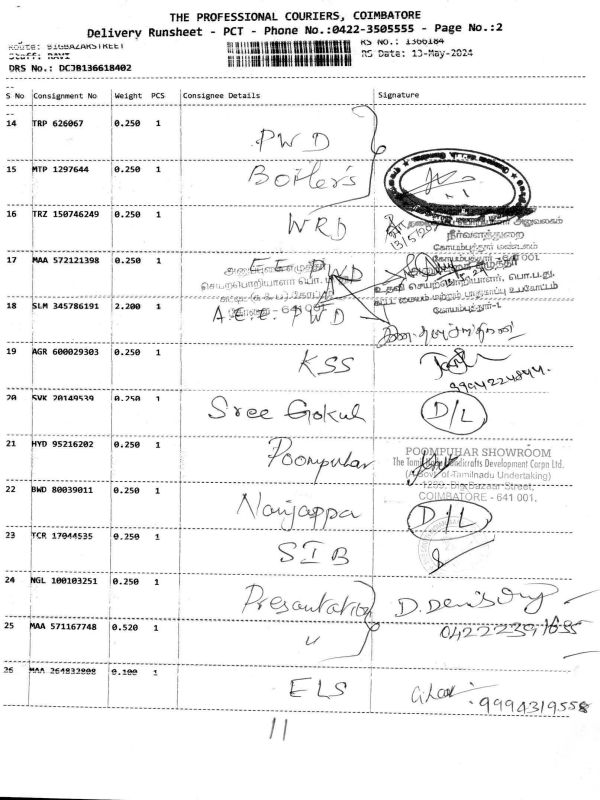 THE PROFESSIONAL COURIERS, COIMBATORE
Delivery Runsheet - PCT - Phone No.:0422-3505555 - Page No.:2
Route: BIGBAZARSTREET RS No.: 1366184
Staff: RAVI RS Date: 13-May-2024
DRS No.: DCJB136618402
S No Consignment No Weight PCS Consignee Details Signature
14 TRP 626067 0.250 1 PWD
15 MTP 1297644 0.250 1 Boiler's
16 TRZ 150746249 0.250 1 WRD
நீர்வளத்துறை
கோயம்புத்தூர் மண்டலம்
கோயம்புத்தூர் - 641 001.
17 MAA 572121398 0.250 1 EE PWD
18 SLM 345786191 2.200 1 A.E.E. PWD
கோயம்புத்தூர்-1
19 AGR 600029303 0.250 1 KSS
9994224844.
20 SVK 20149539 0.250 1 Sree Gokul D/L
21 HYD 95216202 0.250 1 Poompuhar
POOMPUHAR SHOWROOM
The Tamil Nadu Handicrafts Development Corpn Ltd.
(A Govt. of Tamilnadu Undertaking)
Big Bazaar Street,
COIMBATORE - 641 001.
22 BWD 80039011 0.250 1 Nanjappa D/L
23 TCR 17044535 0.250 1 SIB
24 NGL 100103251 0.250 1 Presentation
25 MAA 571167748 0.520 1 "
26 MAA 264832808 0.100 1 ELS
9994319558
11